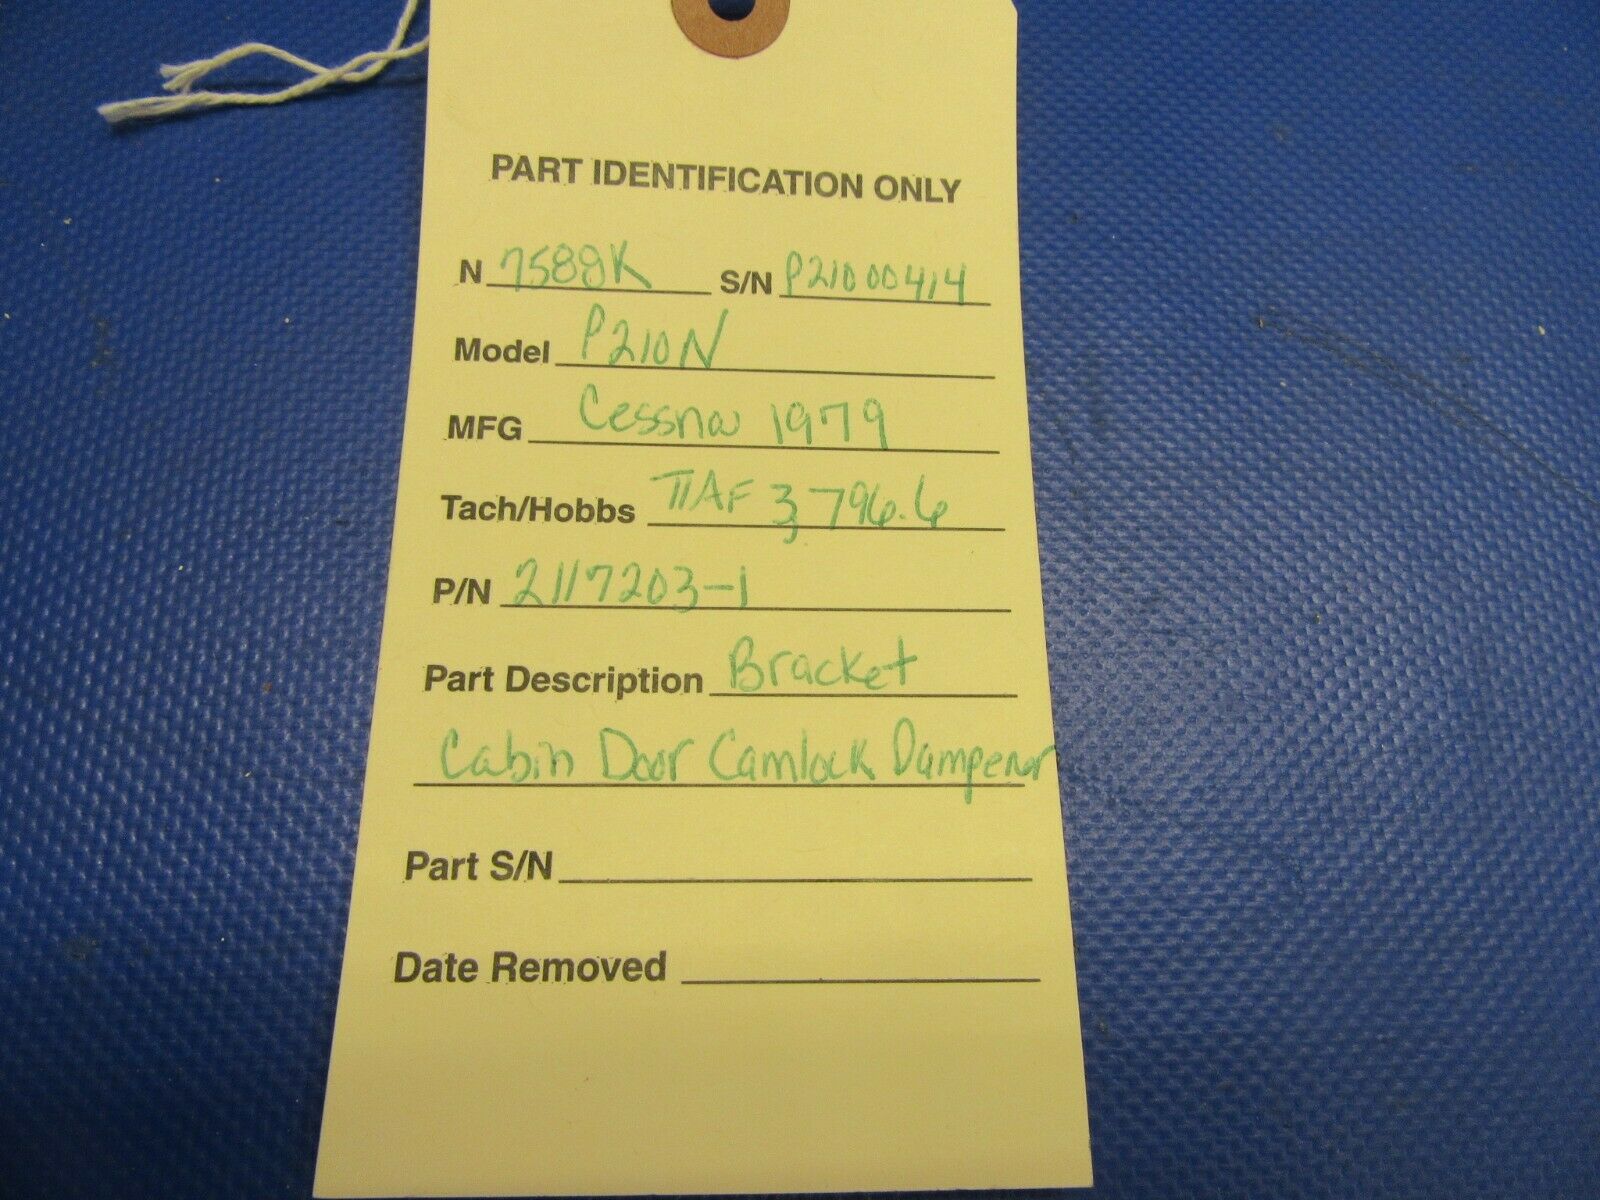 PART IDENTIFICATION ONLY
N 7588K S/N P21000414
Model P210N
MFG Cessna 1979
Tach/Hobbs TTAF 3,796.6
P/N 2117203-1
Part Description Bracket
Cabin Door Camlock Dampener
Part S/N
Date Removed